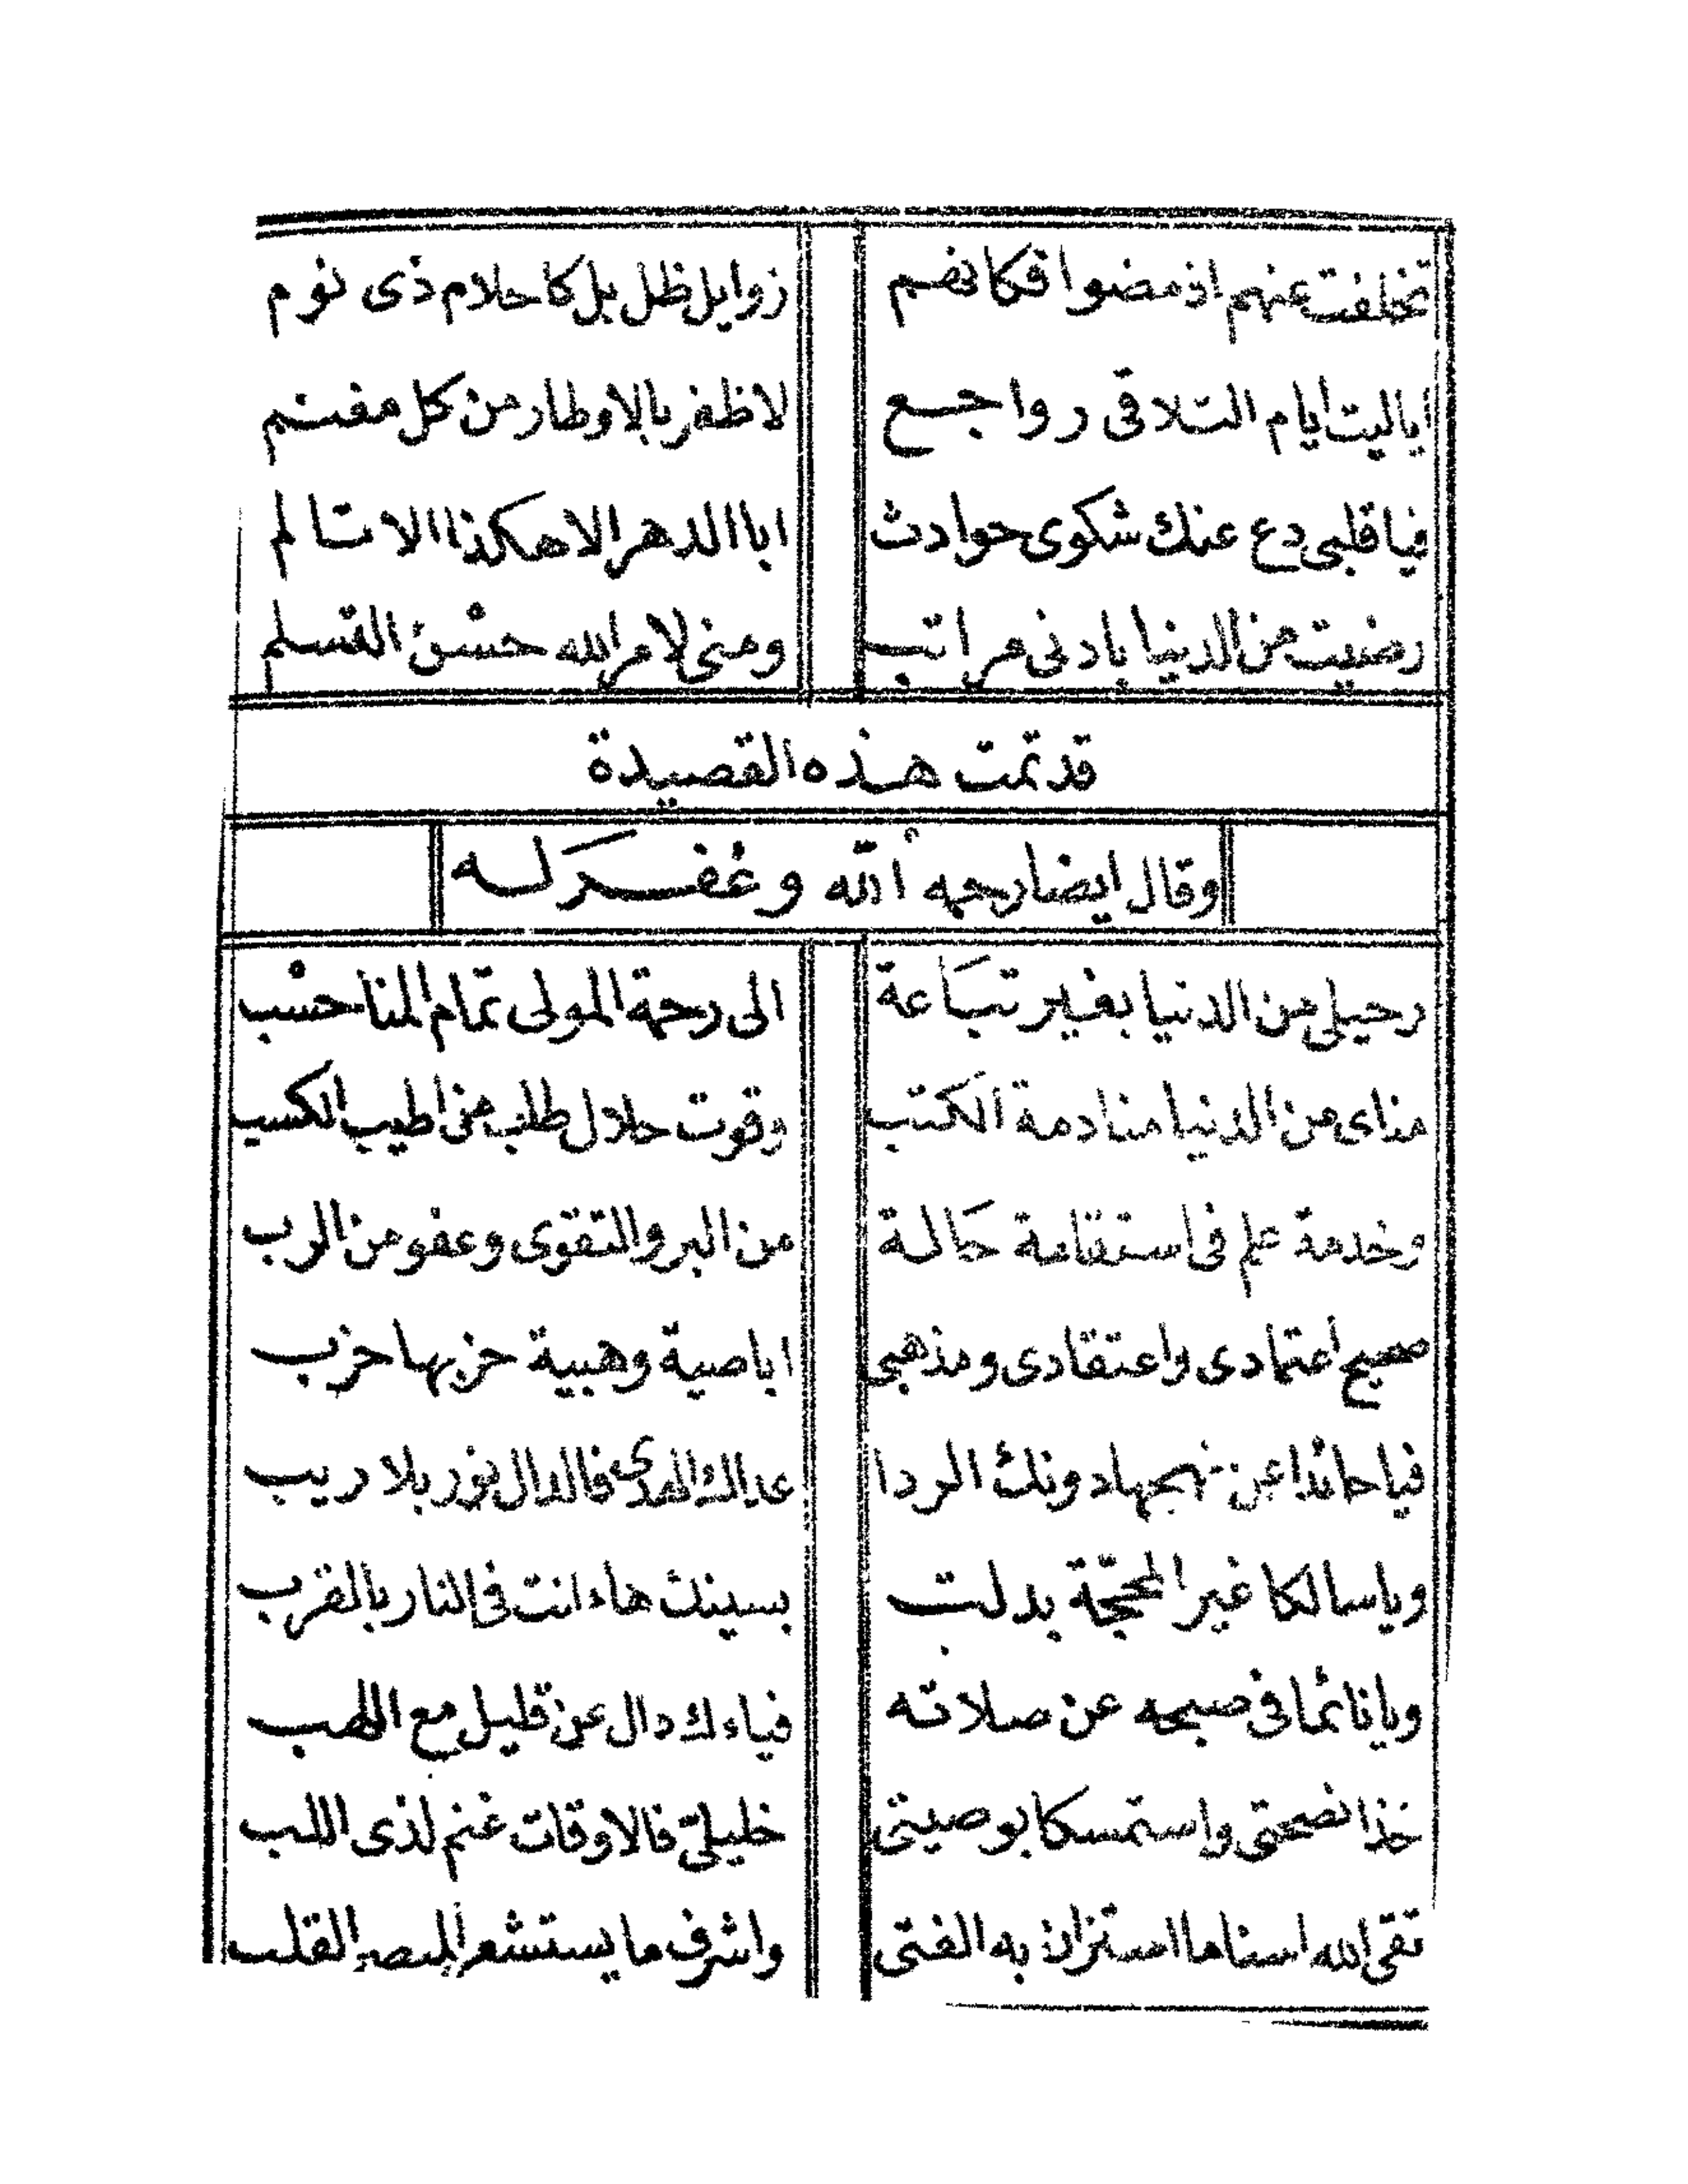 تخلفت عنهم اذ مضوا فكانهم زوايل ظل بل كاحلام ذى نوم
اياليت ايام التلاقى رواجع لاظفر بالاوطار من كل مغنم
فياقلبى دع عنك شكوى حوادث ابا الدهر الا هكذا الا تسالم
رضيت من الدنيا بادنى مراتب ومنى لامر الله حسْن التسلم
قد تمت هذه القصيدة
وقال ايضا رحمه الله وغفر له
رحيلى من الدنيا بغير تبَاعة الى رحمة المولى تمام المنا حسْب
مناى من الدنيا منادمة الكتب وقوت حلال طلب من اطيب الكسب
وخدمة علم فى استقامة حَالة من البر والتقوى وعفو من الرب
صحيح اعتمادى واعتقادى ومذهبى اباصية وهبية حزبها حزب
فيا حائدا عن نهجها دونك الردا عداك الهدى فالدال نور بلا ريب
وياسالكا غير المحجّة بدلت بسينك هاء انت فى النار بالقرب
ويا نائما فى صبحه عن صلاته فياءك دال عن قليل مع اللهب
خذا نصحتى واستمسكا بوصيتى خليلىّ فالاوقات غنم لذى اللب
تقى الله اسنا ما استزان به الفتى واشرف ما يستشعر القلب